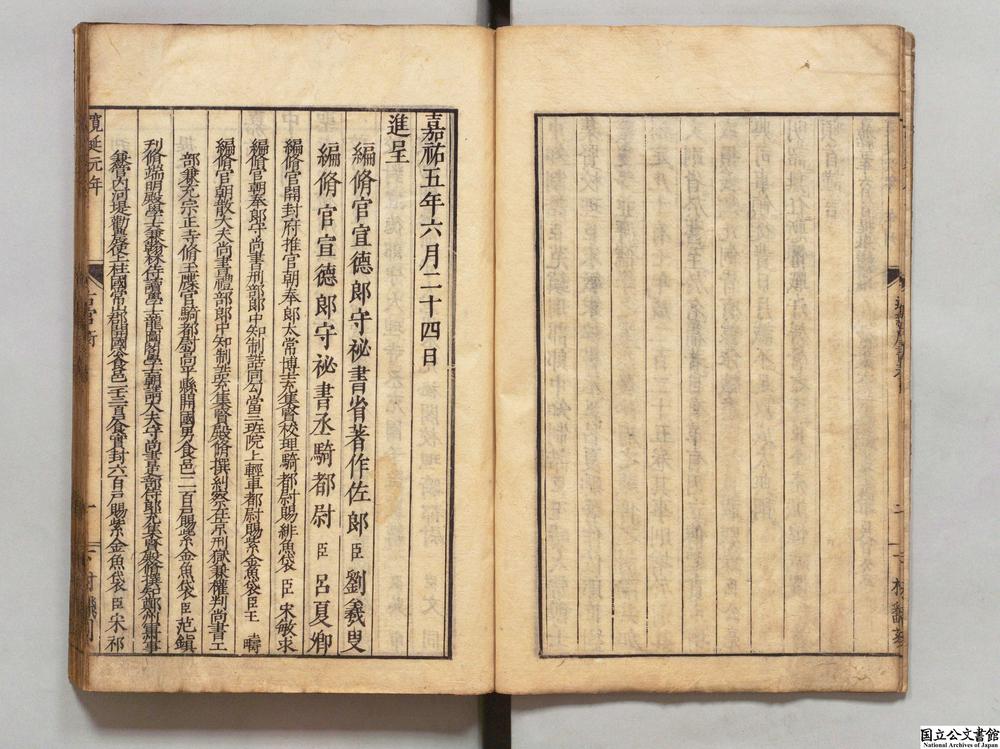 嘉祐五年六月二十四日
進呈
編脩官宣德郎守祕書省著作佐郎臣劉羲叟
編脩官宣德郎守祕書丞騎都尉臣呂夏卿
編脩官開封府推官朝奉郎太常博士充集賢校理騎都尉賜緋魚袋臣宋敏求
編脩官朝奉郎守尚書刑部郎中知制誥同勾當三班院上輕車都尉賜紫金魚袋臣王疇
編脩官朝散大夫尚書禮部郎中知制誥充集賢殿脩撰糾察在京刑獄兼權判尚書工
部兼充宗正寺脩玉牒官騎都尉高平縣開國男食邑三百戶賜紫金魚袋臣范鎮
刋脩端明殿學士兼翰林侍讀學士龍圖閣學士朝請大夫守尚書吏部侍郎充集賢殿脩撰知鄭州軍州事
兼管內河堤勸農使上柱國常山郡開國公食邑二千三百戶食實封六百戶賜紫金魚袋臣宋祁
国立公文書館
National Archives of Japan